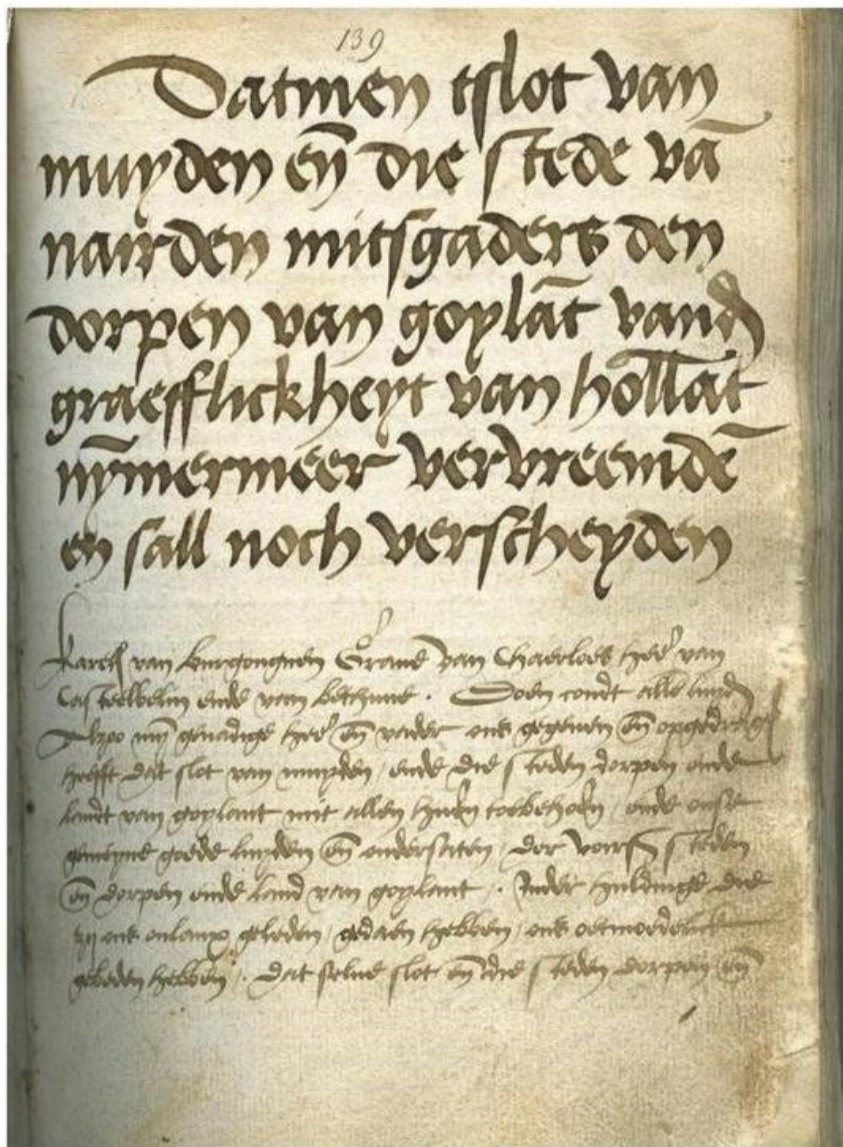 139
Datmen tslot van
muyden eñ die stede vā
nairden mitsgaders den
dorpen van goylāt vand
graefflickheyt van hollāt
nȳmermeer vervreemdē
en sall noch verscheyden
Karel van bourgongnen Graue van Chaerloes heer van
Casteelbelin ende van bethune . Doen condt allen luyden
Alzoo mijn genadige heer eñ vader ons gegeuen eñ opgedregen
heefft dat slot van muyden / ende die steden dorpen ende
landt van goylant mit allen hueren toebehoren / ende onse
gemeyne goede luyden eñ ondersaten / der voirs steden
eñ dorpen ende land van goylant / . Inder huldinge die
zij ons onlanx geleden / gedaen hebben / ons oetmoedelick
gebeden hebben / . dat selue slot eñ die steden dorpen eñ